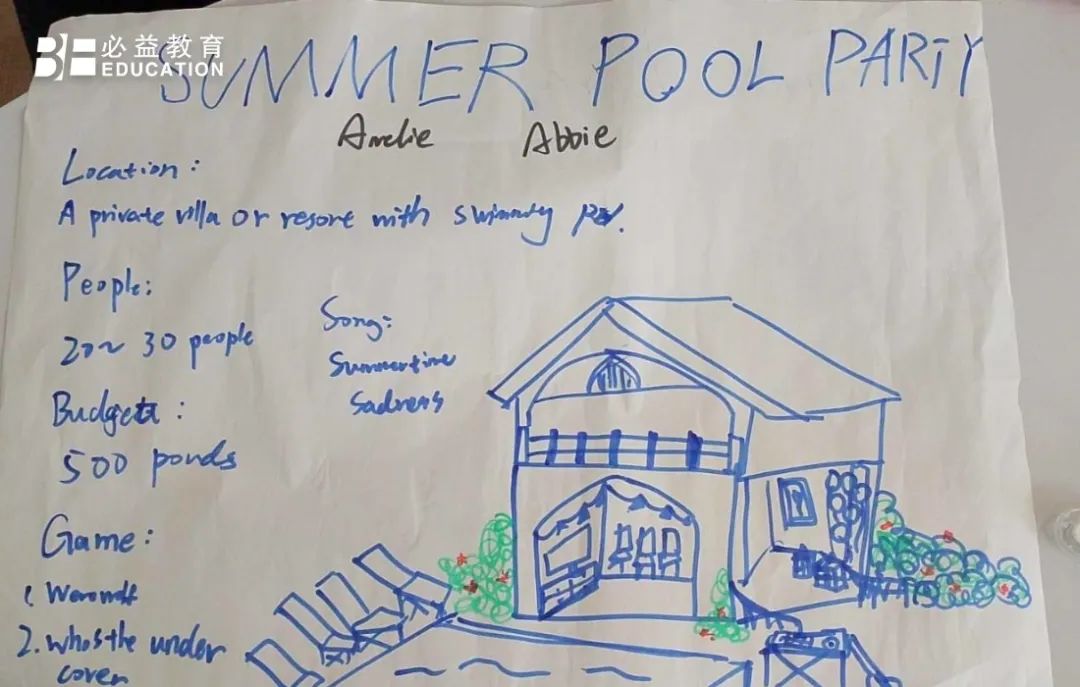 必益教育
EDUCATION
SUMMER POOL PARTY
Amelie Abbie
Location:
A private villa or resort with
People:
20~30 people
Budget:
500 ponds
Song:
Summertime
Sadness
Game:
1.
2. who's the under
cover